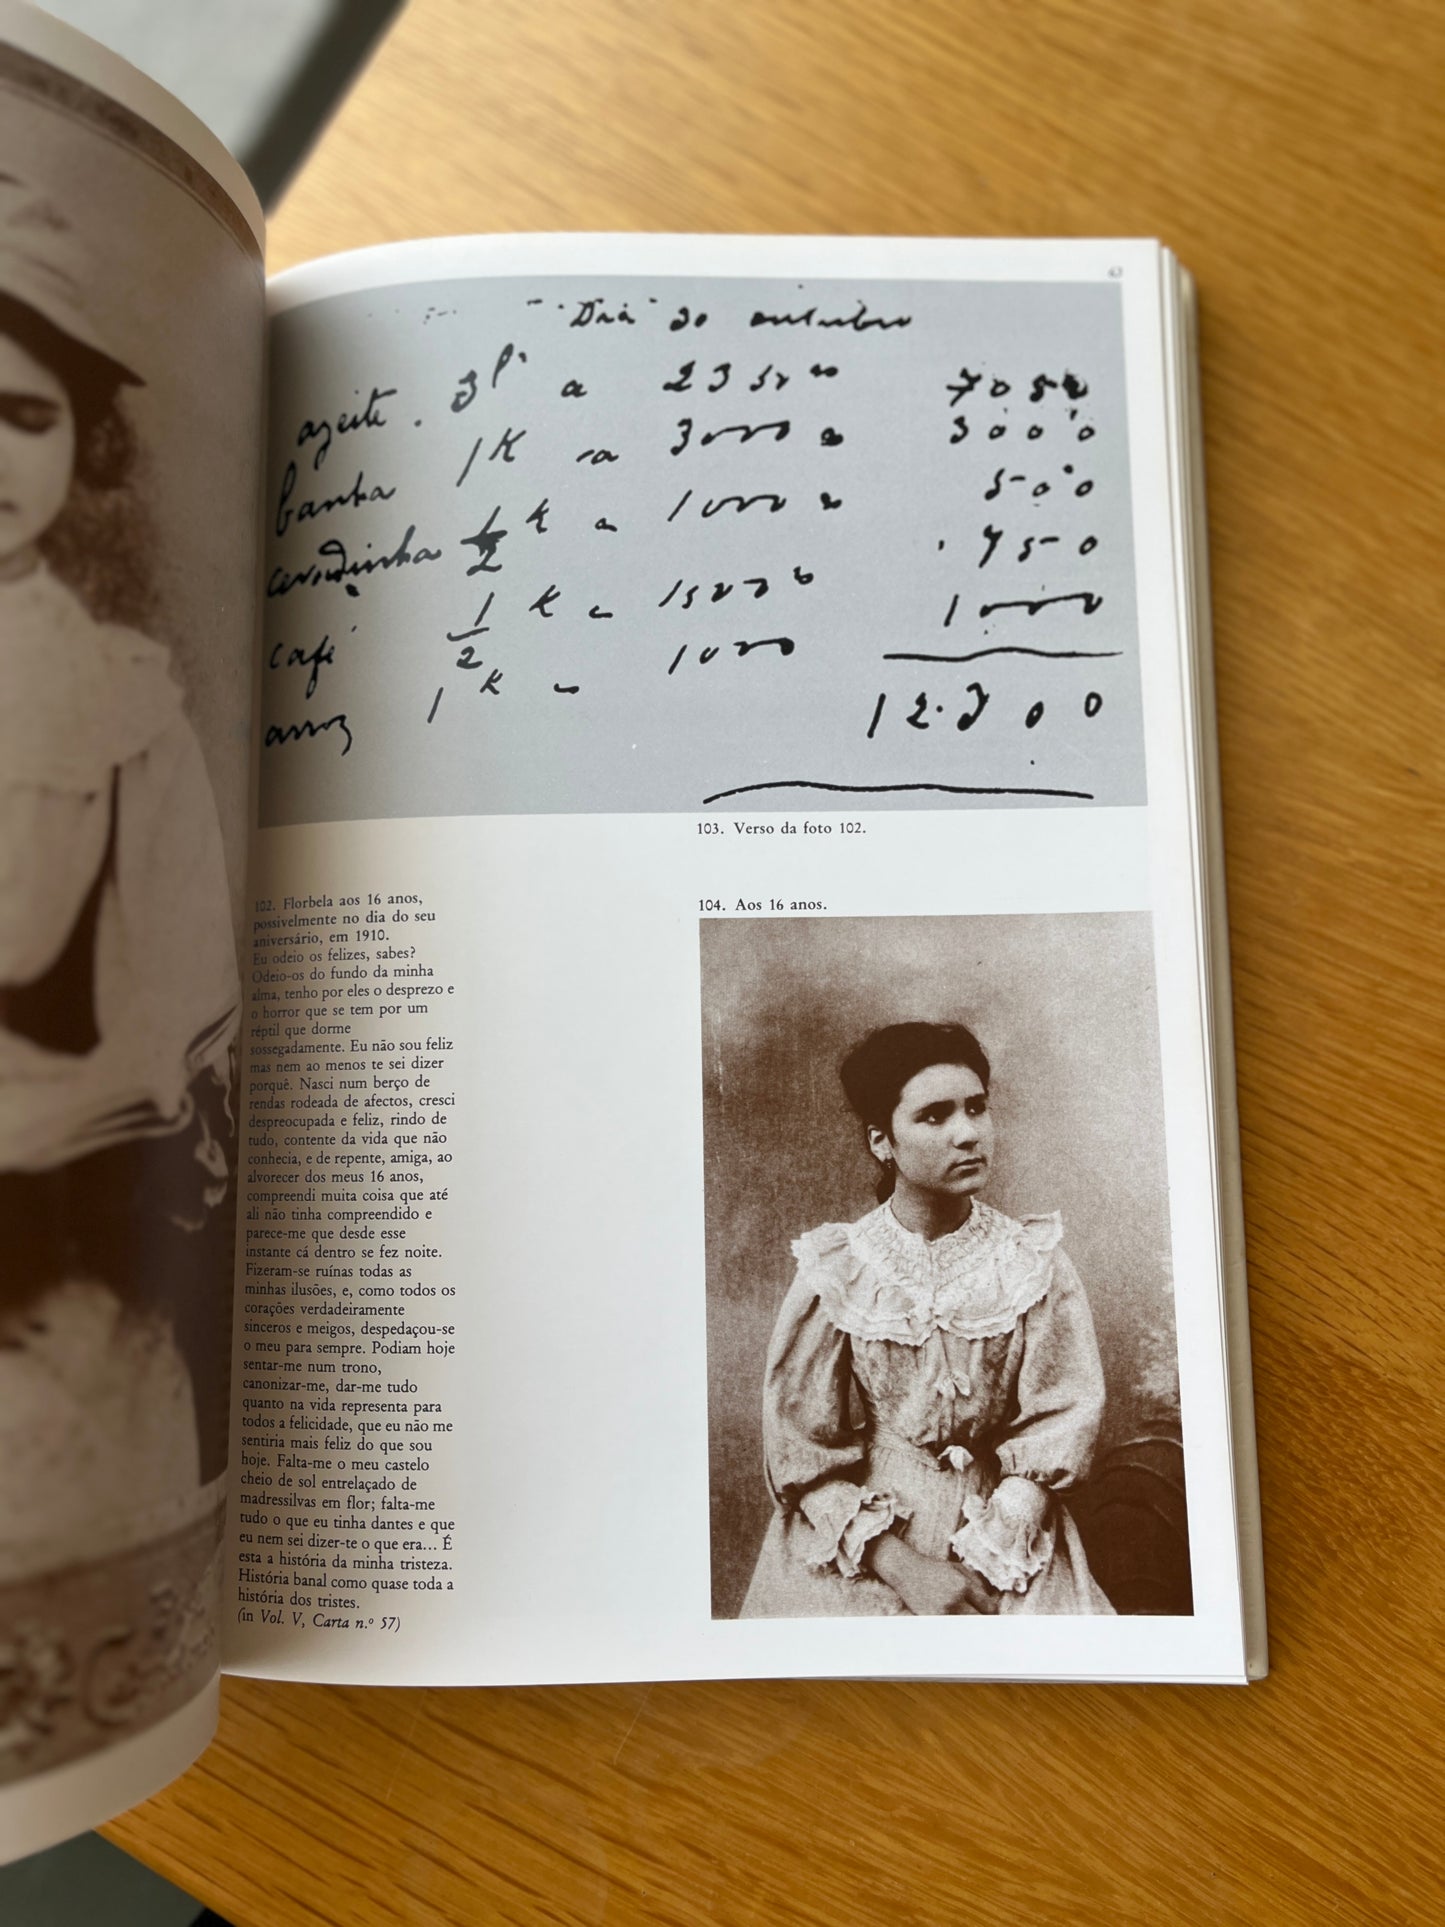 63
Dia 30 outubro
azeite. 3 l. a 2350 7050
banha 1 K a 3000 3000
cevadinha 1/2 K a 1000 500
café 1/2 K a 1500 750
arroz 1 K a 1000 1000
12.300
103. Verso da foto 102.
102. Florbela aos 16 anos,
possivelmente no dia do seu
aniversário, em 1910.
Eu odeio os felizes, sabes?
Odeio-os do fundo da minha
alma, tenho por eles o desprezo e
o horror que se tem por um
réptil que dorme
sossegadamente. Eu não sou feliz
mas nem ao menos te sei dizer
porquê. Nasci num berço de
rendas rodeada de afectos, cresci
despreocupada e feliz, rindo de
tudo, contente da vida que não
conhecia, e de repente, amiga, ao
alvorecer dos meus 16 anos,
compreendi muita coisa que até
ali não tinha compreendido e
parece-me que desde esse
instante cá dentro se fez noite.
Fizeram-se ruínas todas as
minhas ilusões, e, como todos os
corações verdadeiramente
sinceros e meigos, despedaçou-se
o meu para sempre. Podiam hoje
sentar-me num trono,
canonizar-me, dar-me tudo
quanto na vida representa para
todos a felicidade, que eu não me
sentiria mais feliz do que sou
hoje. Falta-me o meu castelo
cheio de sol entrelaçado de
madressilvas em flor; falta-me
tudo o que eu tinha dantes e que
eu nem sei dizer-te o que era... É
esta a história da minha tristeza.
História banal como quase toda a
história dos tristes.
(in Vol. V, Carta n.º 57)
104. Aos 16 anos.